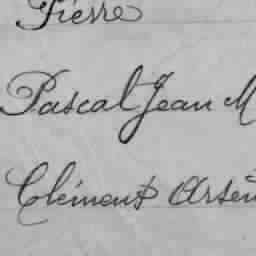 Pierre
Pascal Jean M
Clément Arsèn